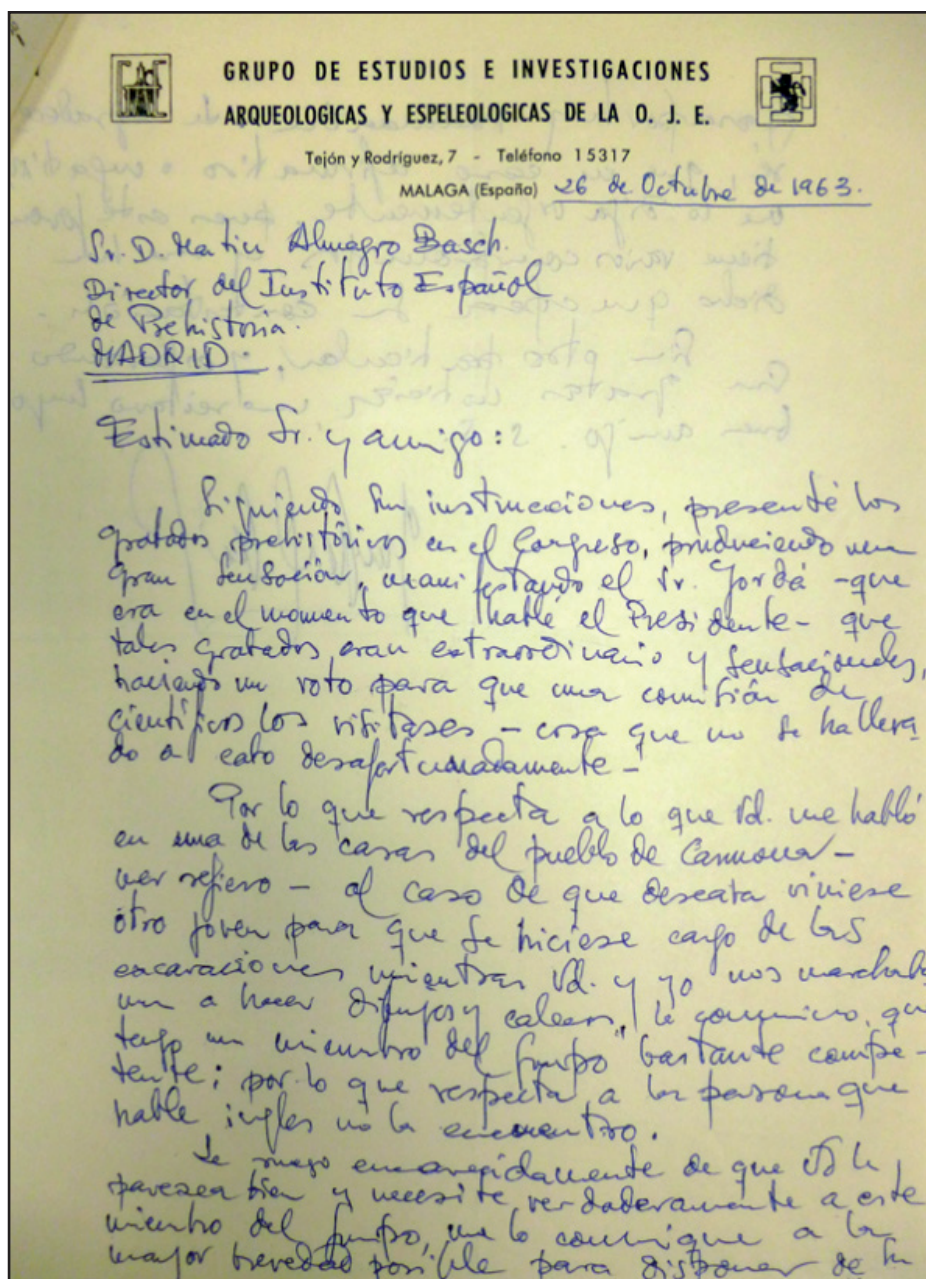 GRUPO DE ESTUDIOS E INVESTIGACIONES
ARQUEOLOGICAS Y ESPELEOLOGICAS DE LA O. J. E.
Tejón y Rodríguez, 7 - Teléfono 15317
MALAGA (España) 26 de Octubre de 1963.
Sr. D. Martin Almagro Basch.
Director del Instituto Español
de Prehistoria.
MADRID.
Estimado Sr. y amigo:
Siguiendo sus instrucciones, presenté los
grabados prehistóricos en el Congreso, produciendo una
gran sensación, manifestando el Sr. Jordá - que
era en el momento que hablé el Presidente - que
tales grabados eran extraordinario y sensacionales,
haciendo un voto para que una comisión de
científicos los visitases - cosa que no se ha lleva
do a cabo desafortunadamente -
Por lo que respecta a lo que Vd. me habló
en una de las casas del pueblo de
me refiero - al caso de que deseara viniese
otro joven para que se hiciese cargo de las
excavaciones mientras Vd. y yo nos marchaba
a hacer dibujos y calcos, le comunico que
tengo un miembro del Grupo bastante compe-
tente; por lo que respecta a la persona que
hable ingles no la encuentro.
Le ruego encarecidamente de que si le
parezca bien y necesite verdaderamente a este
miembro del Grupo, me lo comunique a la
mayor brevedad posible para disponer de